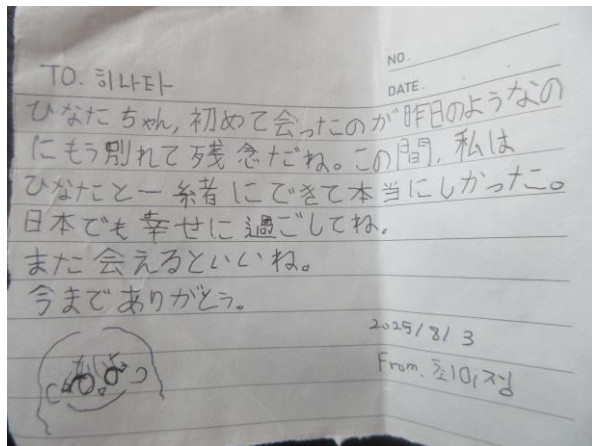 NO.
DATE.
TO. 히나타
ひなたちゃん, 初めて会ったのが昨日のようなの
にもう別れて残念だね。この間, 私は
ひなたと一緒にできて本当にしかったこ。
日本でも幸せに過ごしてね.
また会えるといいね。
今までありがとう。
2025/8/3
From.